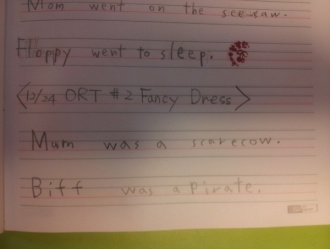 Mom went on the seesaw.
Floppy went to sleep.
<12/24 ORT #2 Fancy Dress>
Mum was a scarecow.
Biff was a Pirate.